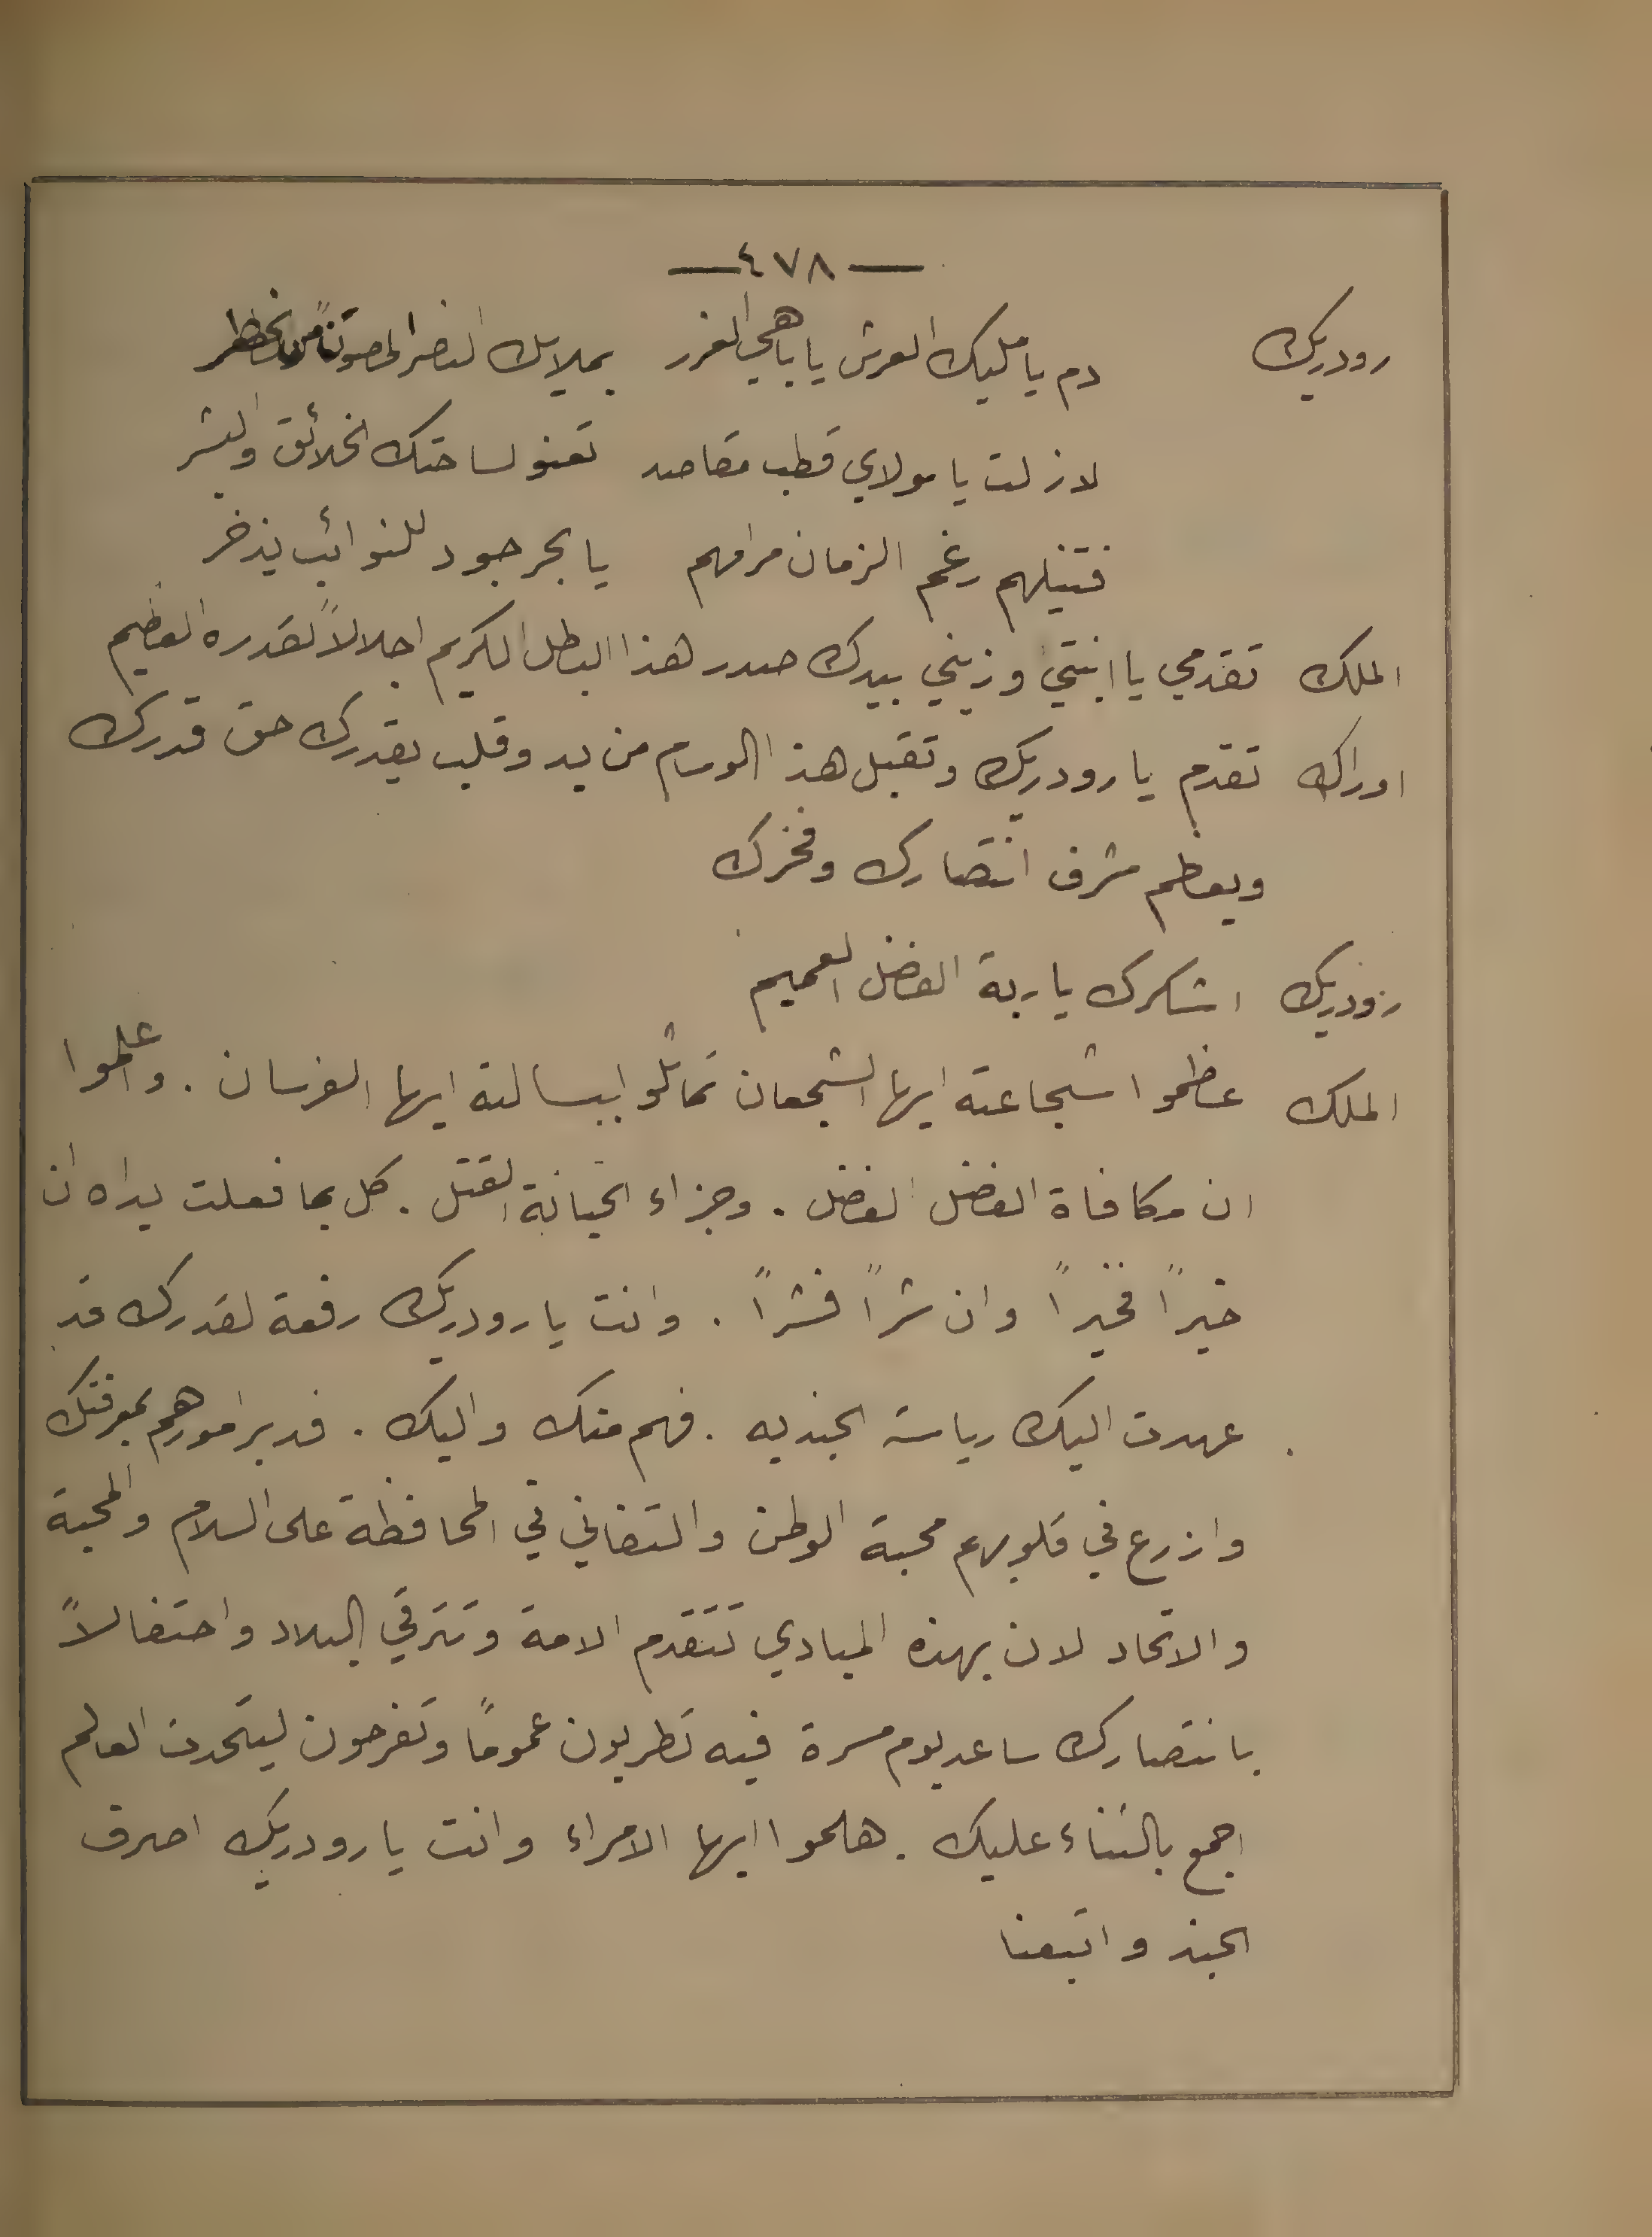 — ٤٧٨ —
رودريك دم يا مليك العرش يا باهي الغرر بملابك النصر المصونة من خطر
لا زلت يا مولاي قطب مقاصد تعنو لساحتك الخلائق والبشر
فتنيلهم رغم الزمان مرامهم يا بحر جود للنوائب يذخر
الملك تقدمي يا ابنتي وزيني بيدك صدر هذا البطل الكريم اجلالاً لقدره العظيم
اوراك تقدم يا رودريك وتقبل هذ الوسام من يد وقلب يقدرك حق قدرك
ويعظم شرف انتصارك وفخرك
رودريك اشكرك يا ربة الفضل العميم
الملك عظموا شجاعته ايها الشجعان تماثلوا ببسالته ايها الفرسان . واعلموا
ان مكافاة الفضل الفضل . وجزاء الخيانة القتل . كل بما فعلت يداه ان
خيراً فخيراً وان شراً فشراً . وانت يا رودريك رفعة لقدرك قد
عهدت اليك رياسة الجنديه . فهم منك واليك . فدبر امورهم بمعرفتك
وازرع في قلوبهم محبة الوطن والتفاني في المحافظة على السلام والمحبة
والاتحاد لان بهذه المبادي تتقدم الامة وتترقي البلاد واحتفالاً
بانتصارك ساعد يوم مسرة فيه تطربون عموماً وتفرحون ليتحدث العالم
اجمع بالثناء عليك . هلموا ايها الامراء وانت يا رودريك اصرف
الجند واتبعنا